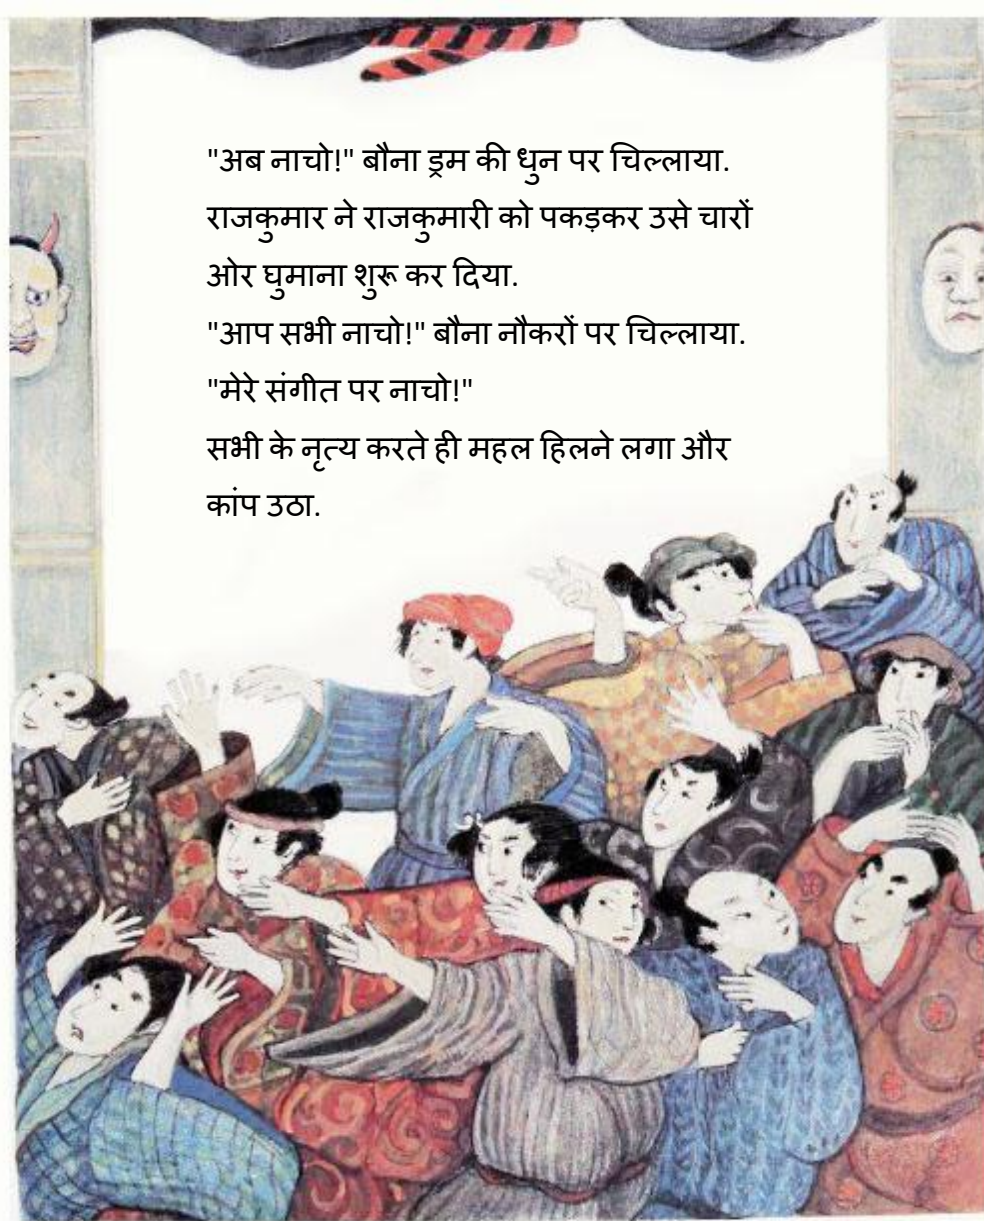 "अब नाचो!" बौना ड्रम की धुन पर चिल्लाया.
राजकुमार ने राजकुमारी को पकड़कर उसे चारों
ओर घुमाना शुरू कर दिया.
"आप सभी नाचो!" बौना नौकरों पर चिल्लाया.
"मेरे संगीत पर नाचो!"
सभी के नृत्य करते ही महल हिलने लगा और
कांप उठा.